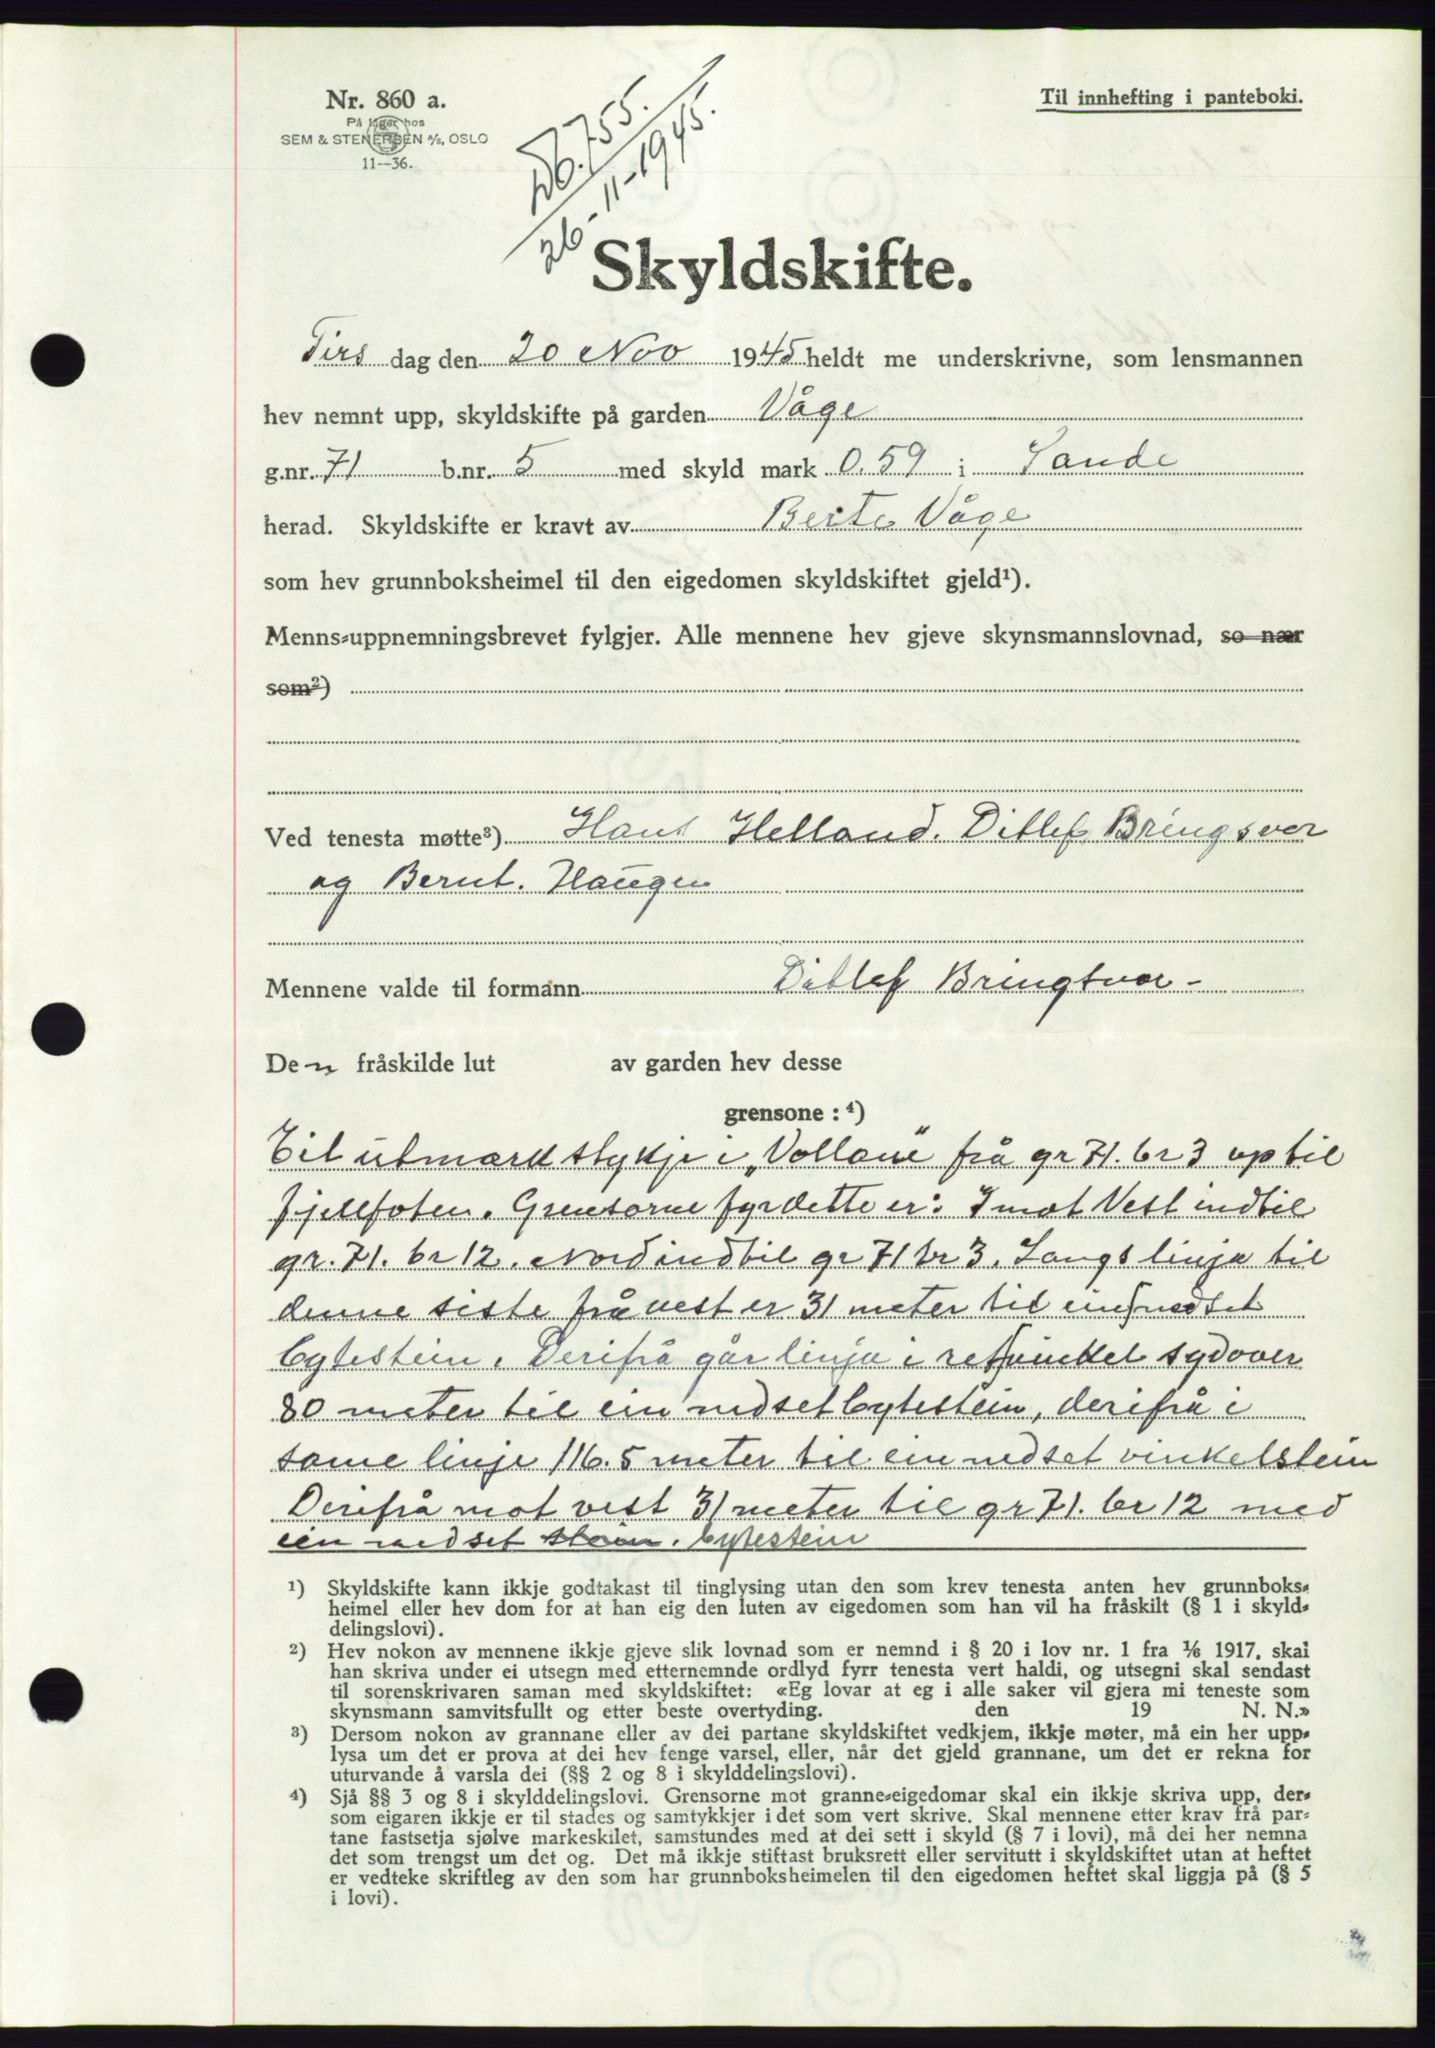 Nr. 860 a.
På lager hos
SEM & STENERSEN A/S, OSLO
11—36.
Til innhefting i panteboki.
Db. 755.
26-11-1945.
Skyldskifte.
Tirs dag den 20 Nov 1945 heldt me underskrivne, som lensmannen
hev nemnt upp, skyldskifte på garden Våge
g.nr. 71 b.nr. 5 med skyld mark 0.59 i Sande
herad. Skyldskifte er kravt av Berte Våge
som hev grunnboksheimel til den eigedomen skyldskiftet gjeld¹).
Menns-uppnemningsbrevet fylgjer. Alle mennene hev gjeve skynsmannslovnad, so nær
som²)
Ved tenesta møtte³) Hans Helland. Ditlef Bringsvor
og Bernt. Haugen
Mennene valde til formann Ditlef Bringsvor -
Den fråskilde lut av garden hev desse
grensone : ⁴)
Eit utmarkstykje i „Vollane“ frå gr 71. br 3 up til
fjellfoten. Grensorne fyr dette er: I mot Vest indtil
gr. 71. br 12. Nord indtil gr 71 br 3. Langs linja til
denne siste frå vest er 31 meter til ein nedset
bytestein. Derifrå går linja i retvinkel sydover
80 meter til ein nedset bytestein, derifrå i
same linje 116.5 meter til ein nedset vinkelstein
Derifrå mot vest 31 meter til gr 71. br 12 med
ein nedset stein. bytestein
¹) Skyldskifte kann ikkje godtakast til tinglysing utan den som krev tenesta anten hev grunnboks-
heimel eller hev dom for at han eig den luten av eigedomen som han vil ha fråskilt (§ 1 i skyld-
delingslovi).
²) Hev nokon av mennene ikkje gjeve slik lovnad som er nemnd i § 20 i lov nr. 1 fra ⅙ 1917, skal
han skriva under ei utsegn med etternemnde ordlyd fyrr tenesta vert haldi, og utsegni skal sendast
til sorenskrivaren saman med skyldskiftet: «Eg lovar at eg i alle saker vil gjera mi teneste som
skynsmann samvitsfullt og etter beste overtyding. den 19 N. N.»
³) Dersom nokon av grannane eller av dei partane skyldskiftet vedkjem, ikkje møter, må ein her upp-
lysa um det er prova at dei hev fenge varsel, eller, når det gjeld grannane, um det er rekna for
uturvande å varsla dei (§§ 2 og 8 i skylddelingslovi).
⁴) Sjå §§ 3 og 8 i skylddelingslovi. Grensorne mot granne-eigedomar skal ein ikkje skriva upp, der-
som eigaren ikkje er til stades og samtykkjer i det som vert skrive. Skal mennene etter krav frå par-
tane fastsetja sjølve markeskilet, samstundes med at dei sett i skyld (§ 7 i lovi), må dei her nemna
det som trengst um det og. Det må ikkje stiftast bruksrett eller servitutt i skyldskiftet utan at heftet
er vedteke skriftleg av den som har grunnboksheimelen til den eigedomen heftet skal liggja på (§ 5
i lovi).